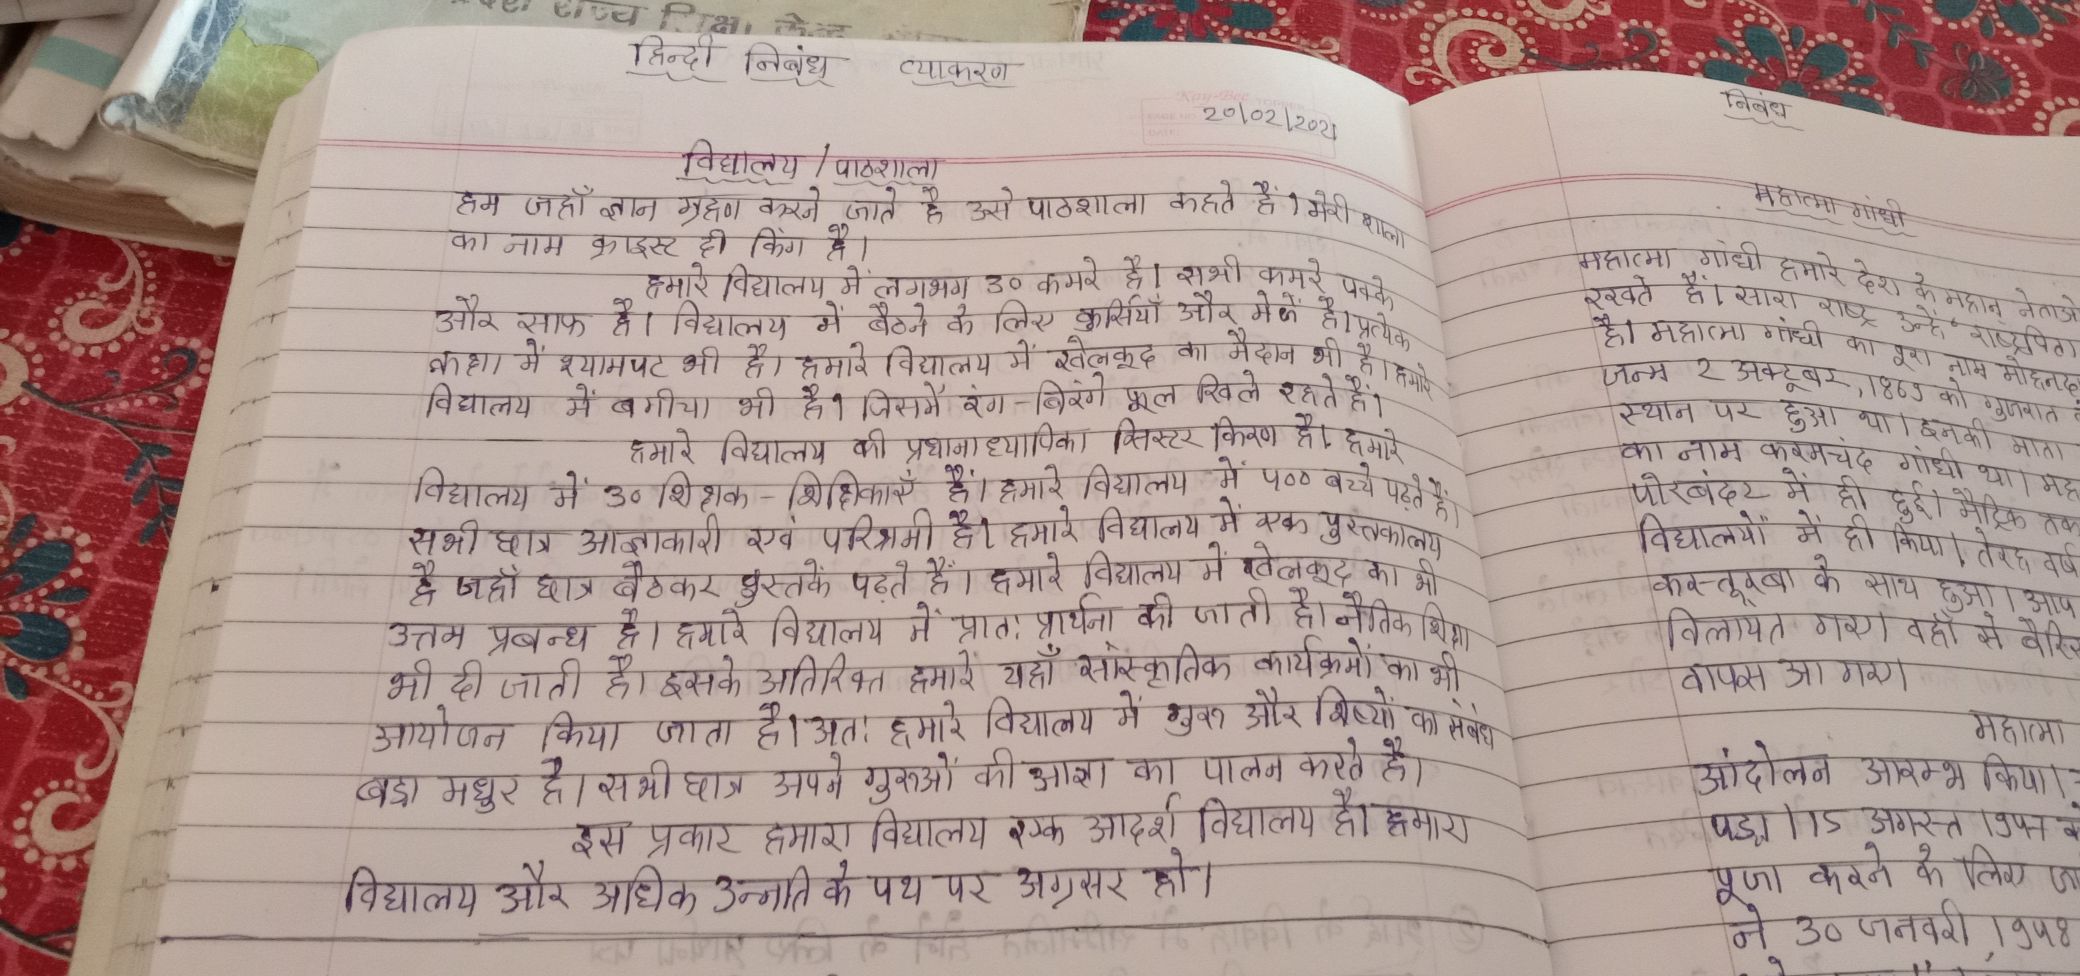 राज्य शिक्षा केन्द्र
हिन्दी निबंध व्याकरण
20/02/2021
विद्यालय / पाठशाला
हम जहाँ ज्ञान ग्रहण करने जाते है उसे पाठशाला कहते हैं। मेरी शाला
का नाम क्राइस्ट दी किंग है।
हमारे विद्यालय में लगभग 30 कमरे है। सभी कमरे पक्के
और साफ है। विद्यालय में बैठने के लिए कुर्सियाँ और मेजें है। प्रत्येक
कक्षा में श्यामपट भी है। हमारे विद्यालय में खेलकूद का मैदान भी है। हमारे
विद्यालय में बगीचा भी है। जिसमें रंग-बिरंगे फूल खिले रहते हैं।
हमारे विद्यालय की प्रधानाध्यापिका सिस्टर किरण है। हमारे
विद्यालय में 30 शिक्षक - शिक्षिकाएँ हैं। हमारे विद्यालय में ५०० बच्चे पढ़ते हैं।
सभी छात्र आज्ञाकारी एवं परिश्रमी है। हमारे विद्यालय में एक पुस्तकालय
है जहाँ छात्र बैठकर पुस्तकें पढ़ते हैं। हमारे विद्यालय में खेलकूद का भी
उत्तम प्रबन्ध है। हमारे विद्यालय में प्रातः प्रार्थना की जाती है। नैतिक शिक्षा
भी दी जाती है। इसके अतिरिक्त हमारे यहाँ सांस्कृतिक कार्यक्रमों का भी
आयोजन किया जाता है। अतः हमारे विद्यालय में गुरू और शिष्यों का संबंध
बड़ा मधुर है। सभी छात्र अपने गुरुओं की आज्ञा का पालन करते है।
इस प्रकार हमारा विद्यालय एक आदर्श विद्यालय है। हमारा
विद्यालय और अधिक उन्नति के पथ पर अग्रसर हो।
निबंध
महात्मा गांधी
महात्मा गांधी हमारे देश के महान नेताओ
रखते हैं। सारा राष्ट्र उन्हें "राष्ट्रपिता
है। महात्मा गांधी का पूरा नाम मोहनदा
जन्म 2 अक्टूबर, 1869 को गुजरात
स्थान पर हुआ था। इनकी माता
का नाम करमचंद गांधी था। महा
पोरबंदर में ही हुई। मैट्रिक तक
विद्यालयों में ही किया। तेरह वर्ष
कस्तूरबा के साथ हुआ। आप
विलायत गए। वहाँ से बैरिस
वापस आ गए।
महात्मा
आंदोलन आरम्भ किया।
पड़ा। 15 अगस्त 1947
पूजा करने के लिए जा
ने 30 जनवरी 1948